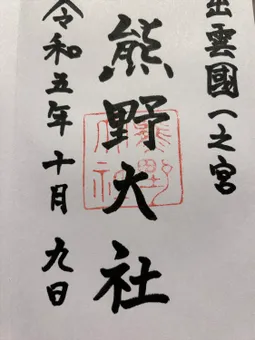 出雲國一之宮
熊野大社
令和五年十月九日
熊野
大社